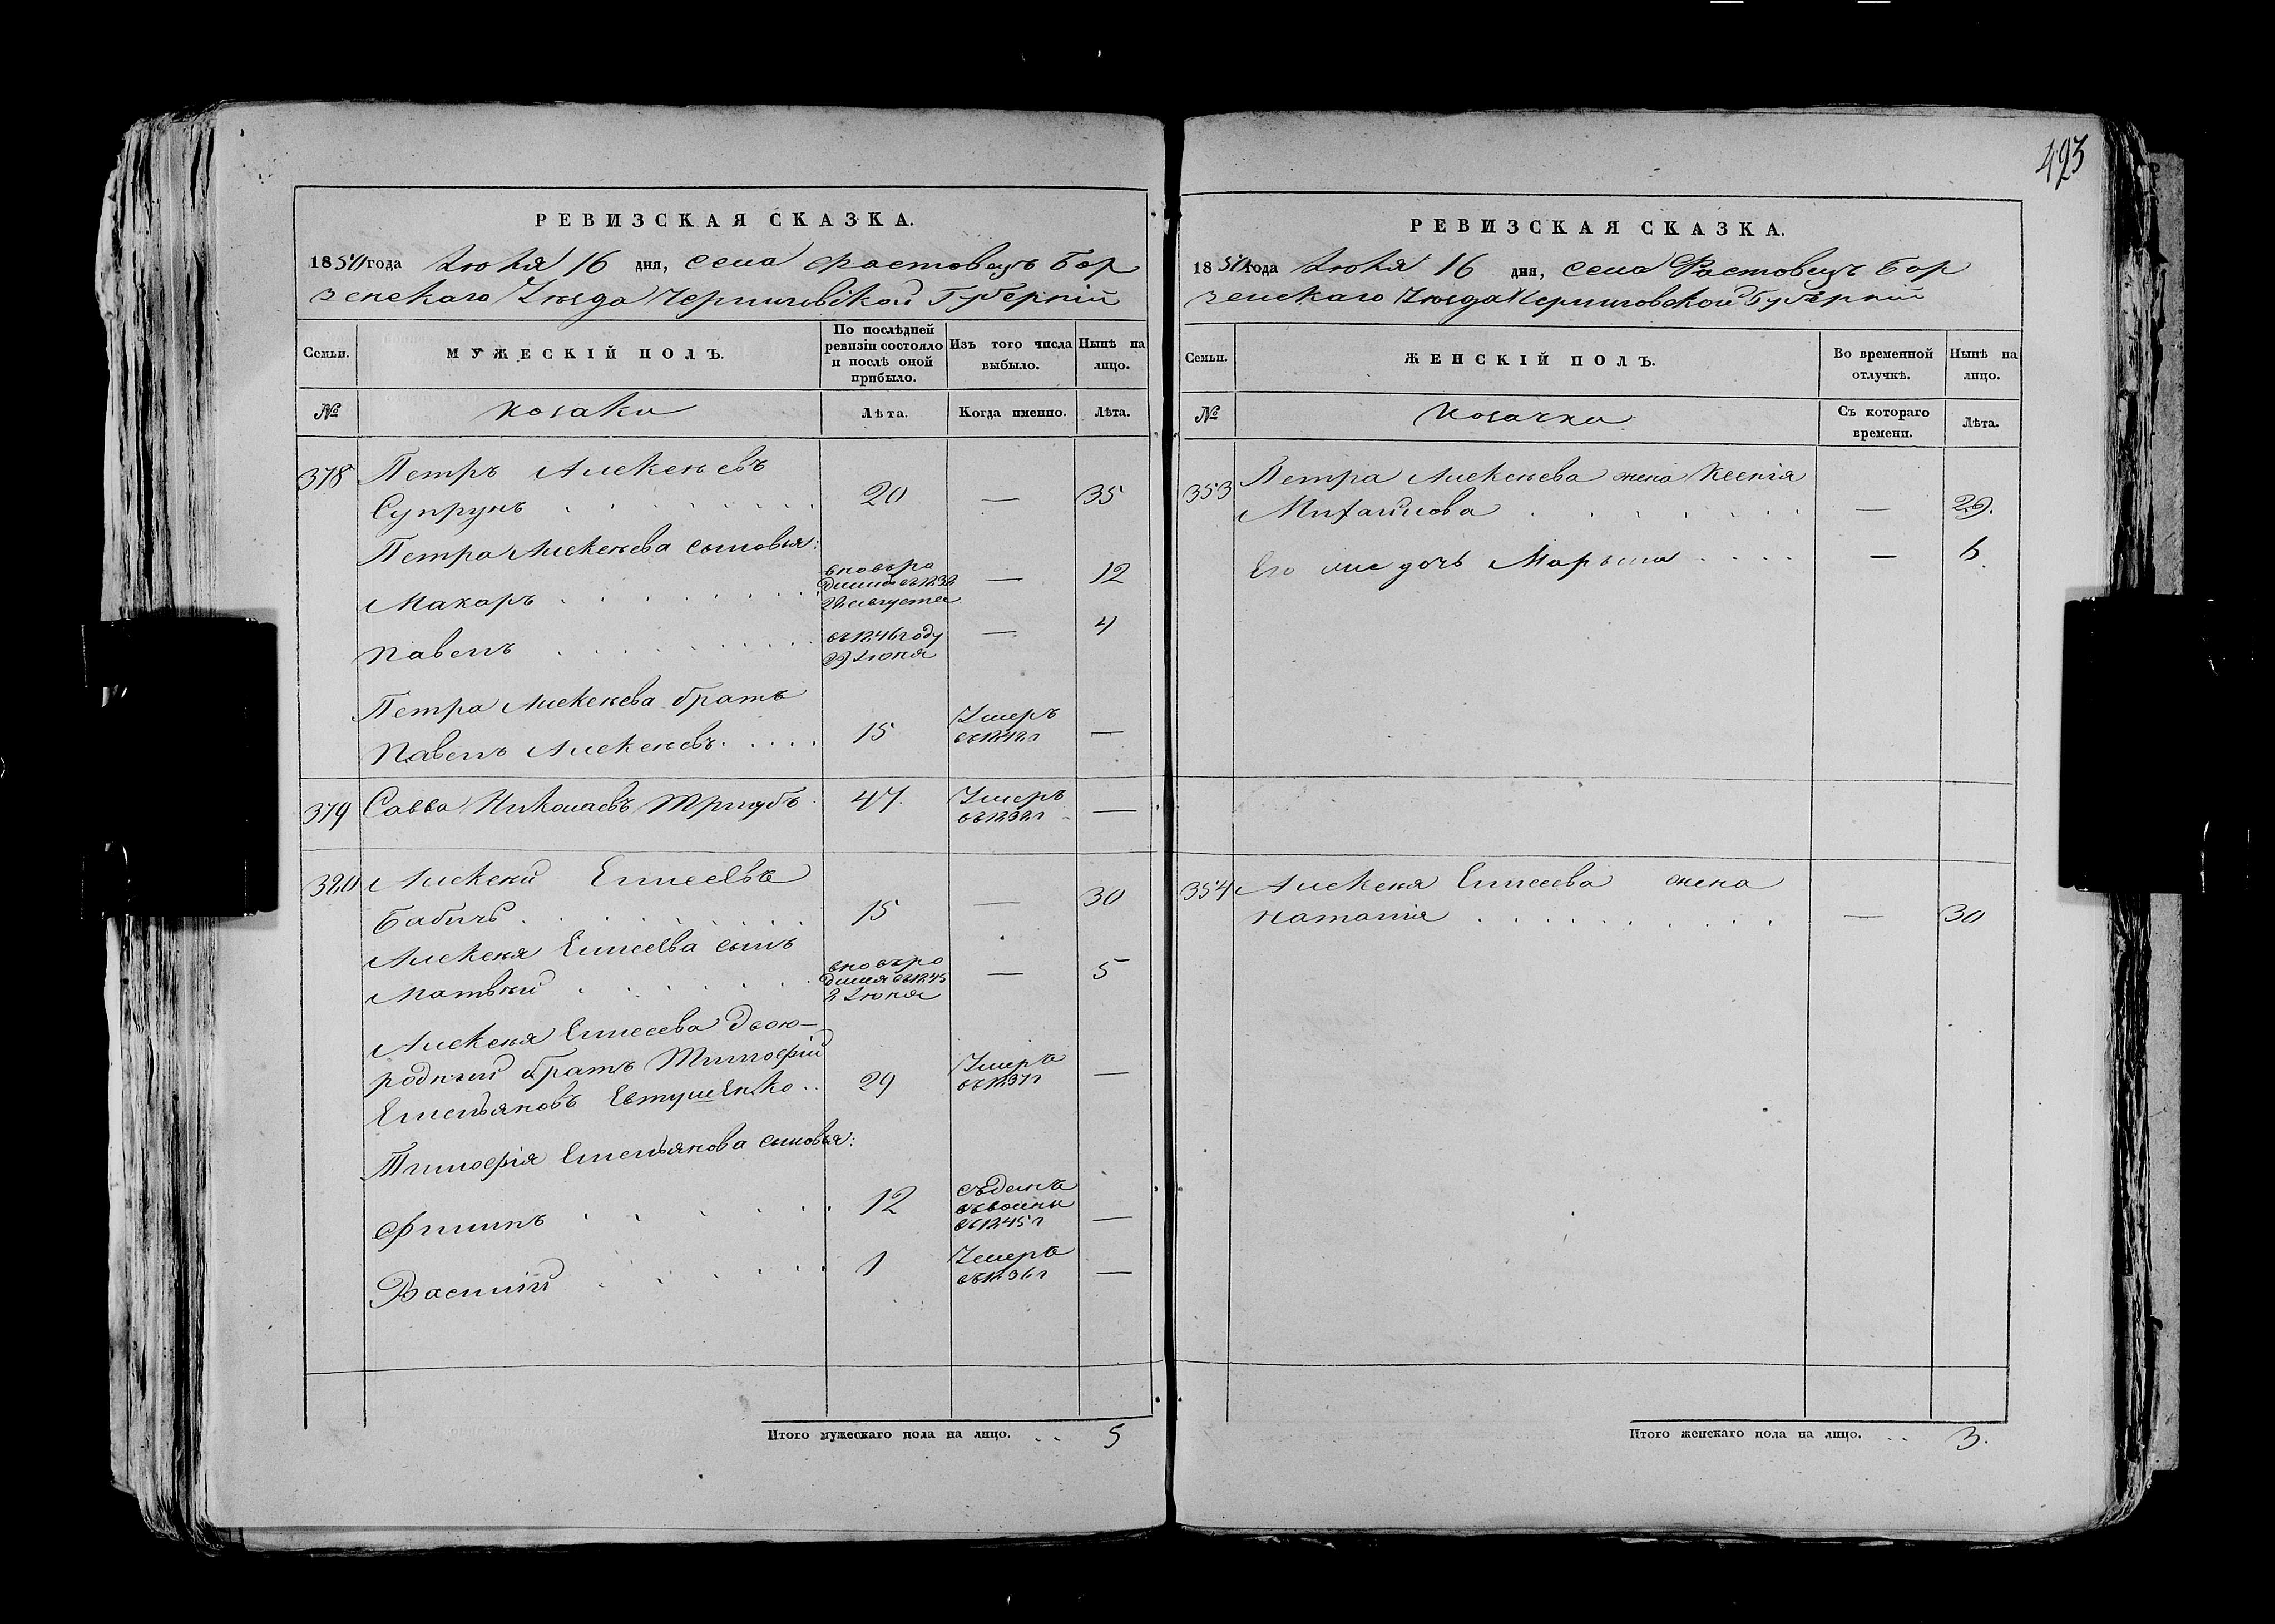 423
РЕВИЗСКАЯ СКАЗКА.
1850 года Июля 16 дня, села Растовецъ Бор
зенскаго Уѣзда Черниговской Губерніи
Семьи.
МУЖЕСКІЙ ПОЛЪ.
По послѣдней ревизіи состояло и послѣ оной прибыло.
Изъ того числа выбыло.
Нынѣ на лицо.
№
Козаки
Лѣта.
Когда именно.
Лѣта.
378 Петръ Алексѣевъ
Супрунъ 20 — 35
Петра Алексѣева сыновья:
Макаръ вновь ро
дился въ 1838
22 августа — 12
Павелъ въ 1846 году
29 Июня — 4
Петра Алексѣева братъ
Павелъ Алексѣевъ 15 Умеръ
въ 1842 г —
379 Савва Николаевъ Тригубъ 47 Умеръ
въ 1838 г —
380 Алексѣй Елисеевъ
Бабичъ 15 — 30
Алексѣя Елисеева сынъ
Матвѣй вновь ро
дился въ 1845
2 Июня — 5
Алексѣя Елисеева двою-
родный братъ Тимофій
Емельяновъ Евтушенко 29 Умеръ
въ 1837 г —
Тимофія Емельянова сыновья:
Филипъ 12 въ 1845 г —
Василій 1 Умеръ
въ 1836 г —
Итого мужескаго пола на лицо. 5
РЕВИЗСКАЯ СКАЗКА.
1850 года Июля 16 дня, села Растовецъ Бор
зенскаго Уѣзда Черниговской Губерніи
Семьи.
ЖЕНСКІЙ ПОЛЪ.
Во временной отлучкѣ.
Нынѣ на лицо.
№
Козачки
Съ котораго времени.
Лѣта.
353 Петра Алексѣева жена Ксенія
Михайлова — 29.
Его же дочь Марьина — 6
354 Алексѣя Елисеева жена
Наталія — 30
Итого женскаго пола на лицо. 3.